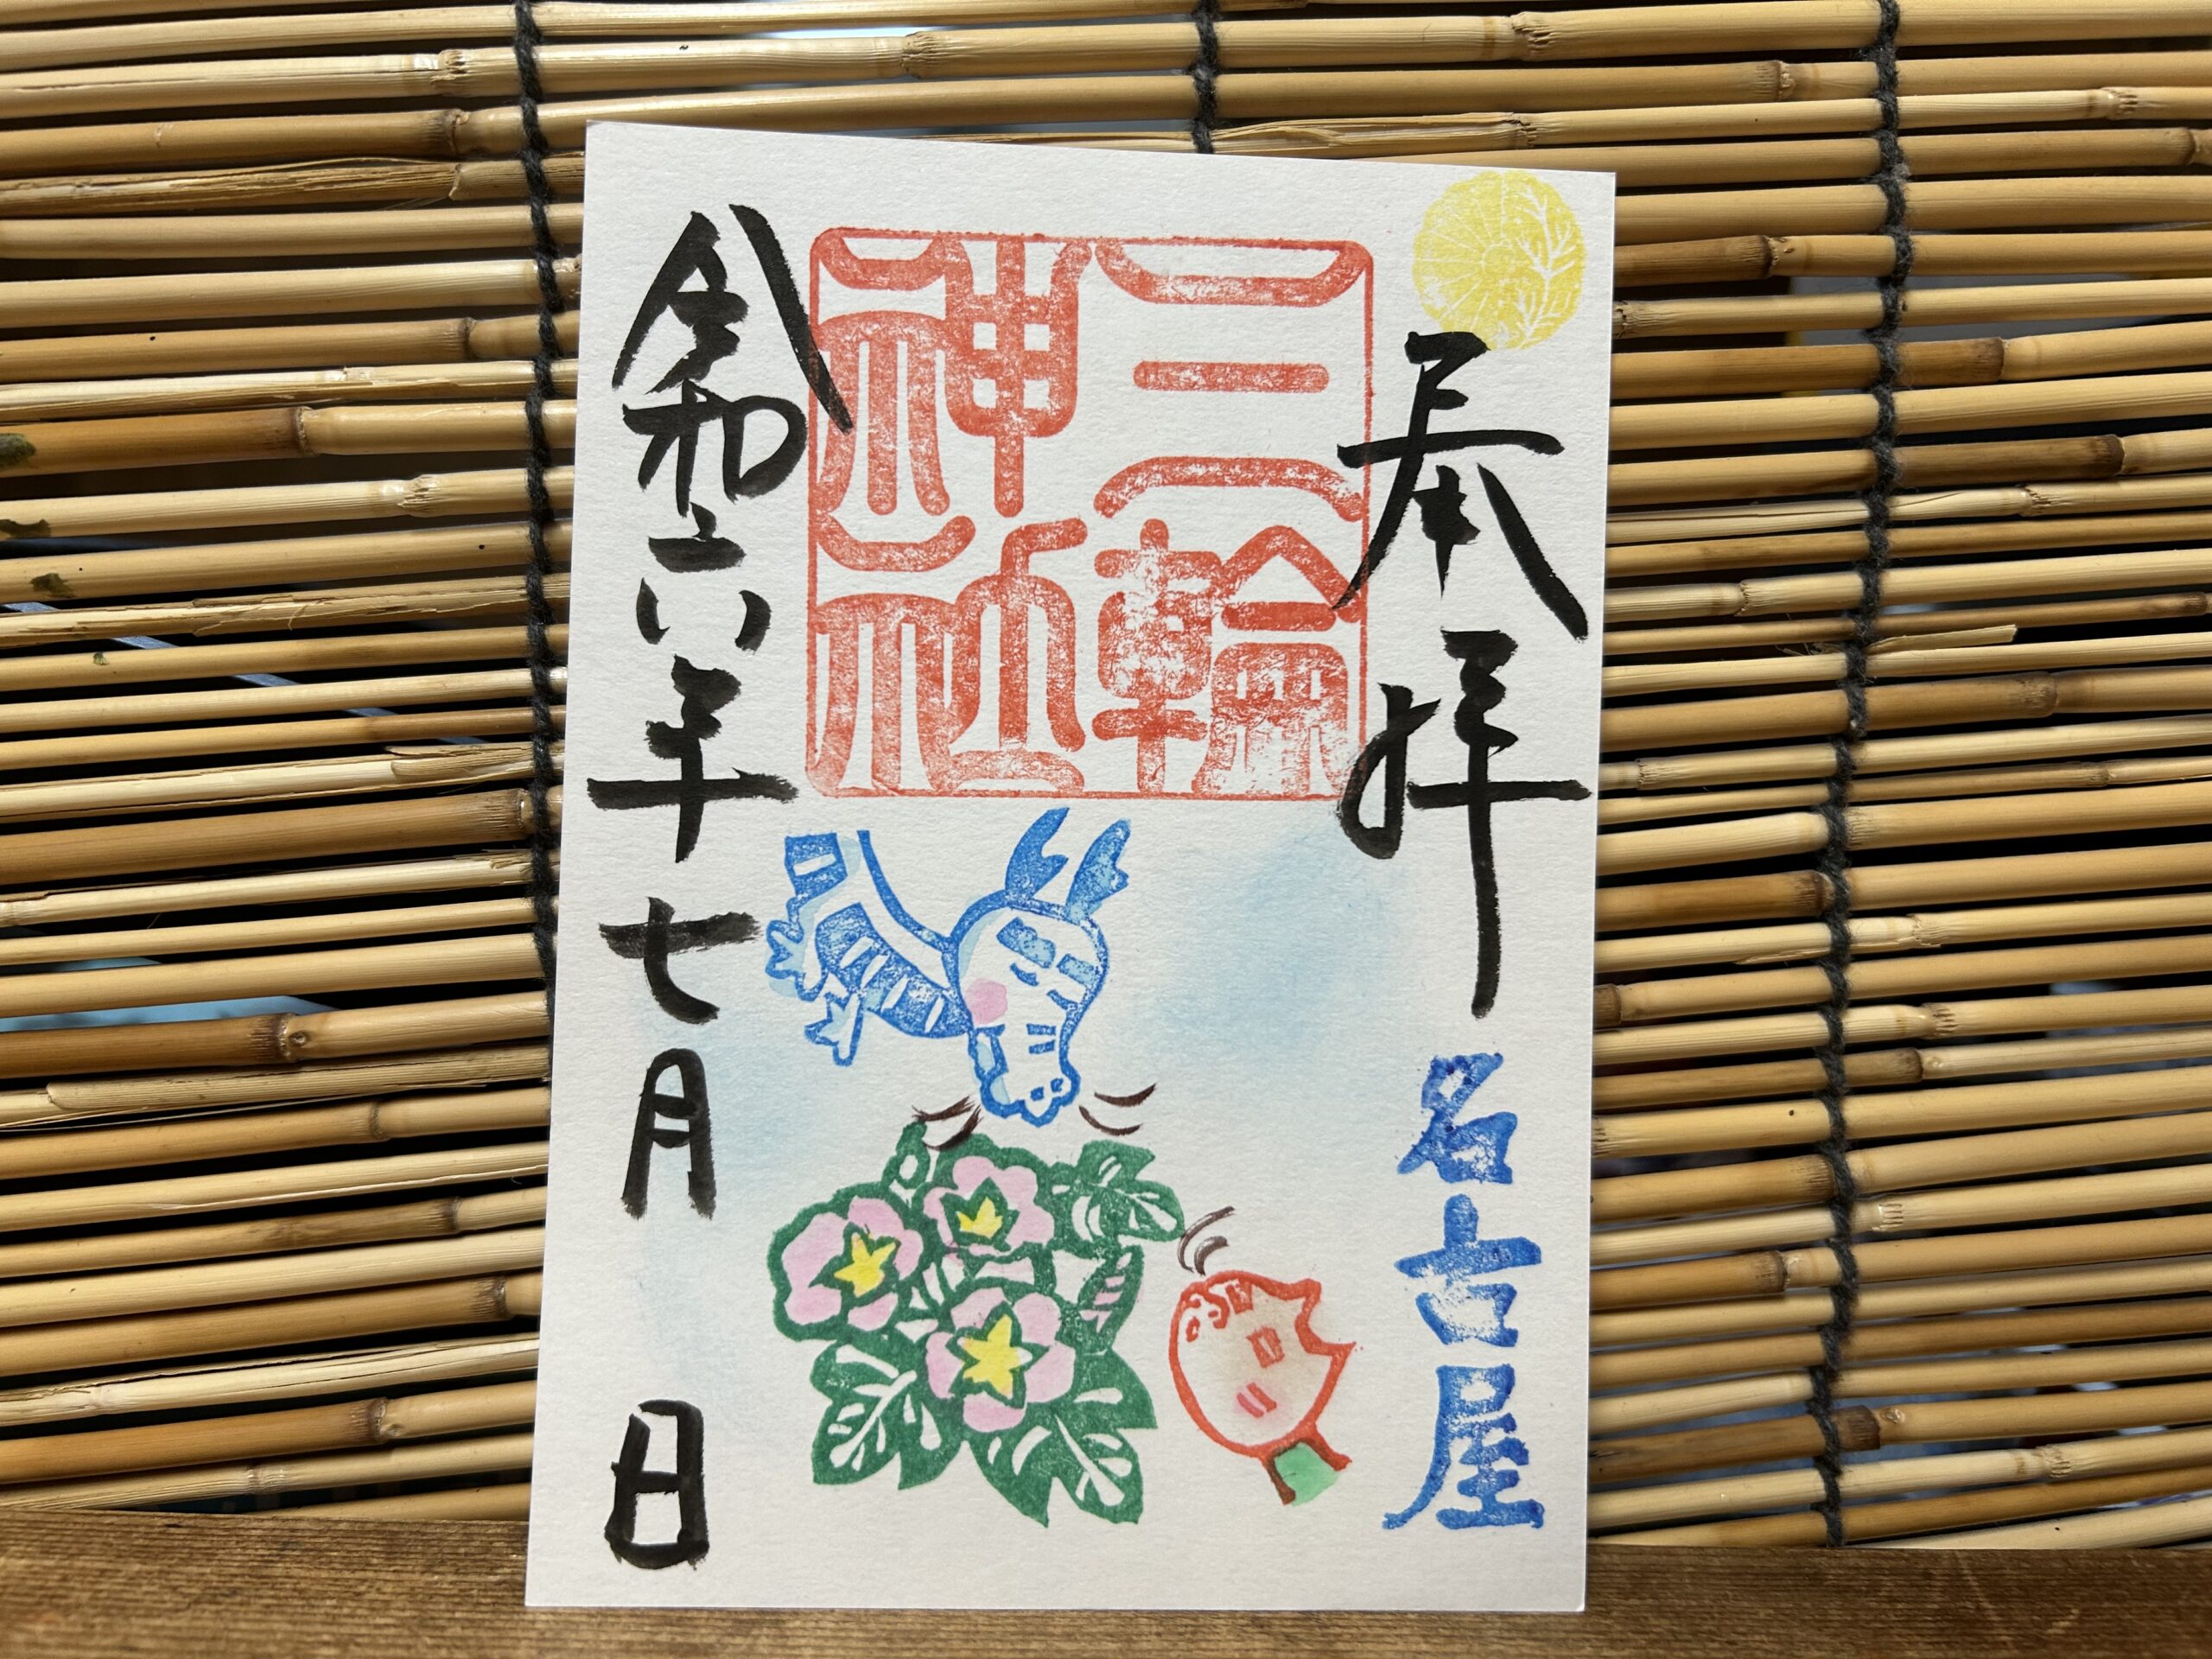 奉拝
名古屋
三輪
神社
令和六年七月 日